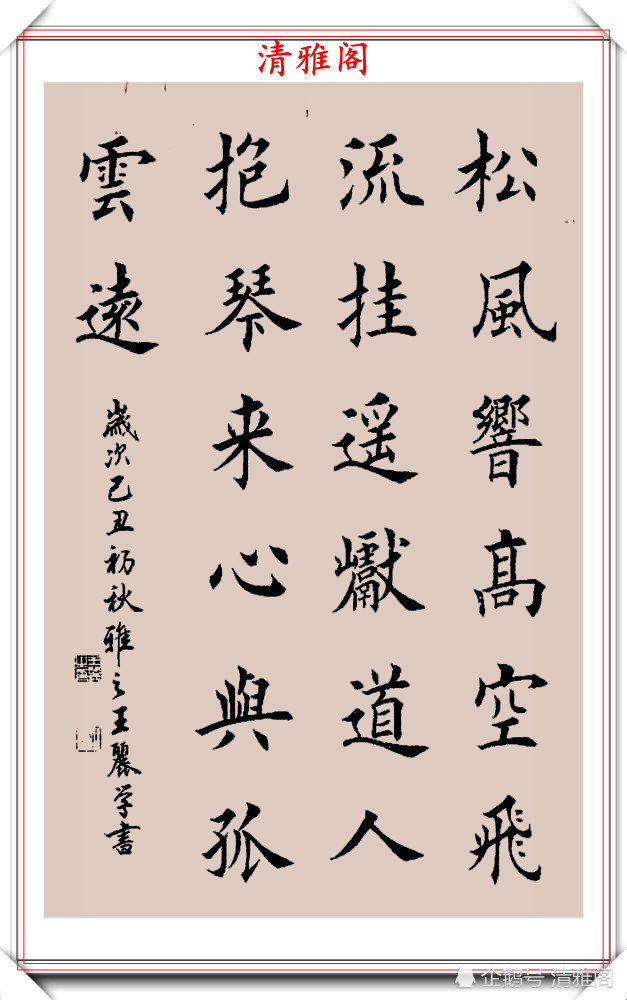 清雅阁
松風響高空飛
流挂遥巘道人
抱琴来心與孤
雲遠
歲次己丑初秋雅之王麗学書
企鹅号 清雅阁